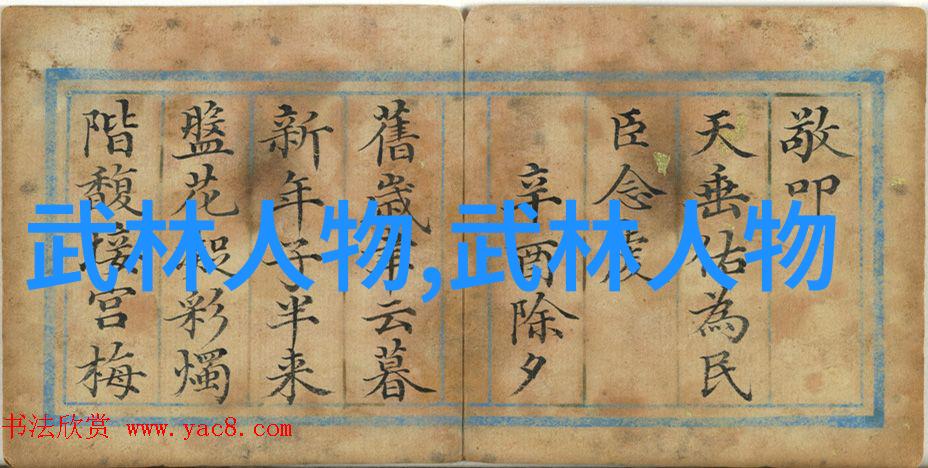 敬叩
天垂佑為民
臣念虔
辛酉除夕
舊歲聿云暮
新年子半来
盤花彩燭
階馥接宮梅
武林人物,武林人物
书法欣赏 www.yac8.com